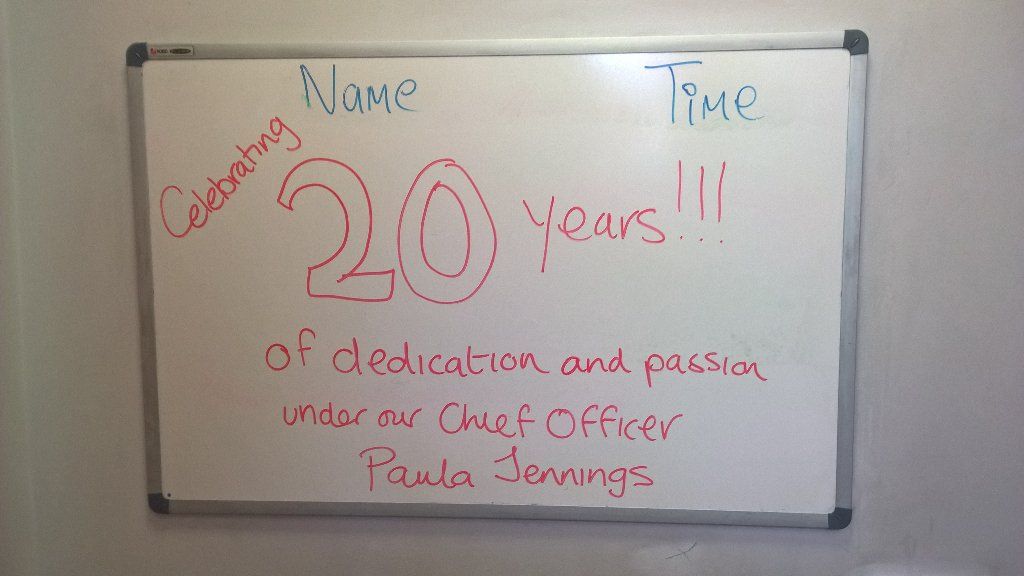 Name Time
Celebrating 20 years!!!
of dedication and passion
under our Chief Officer
Paula Jennings